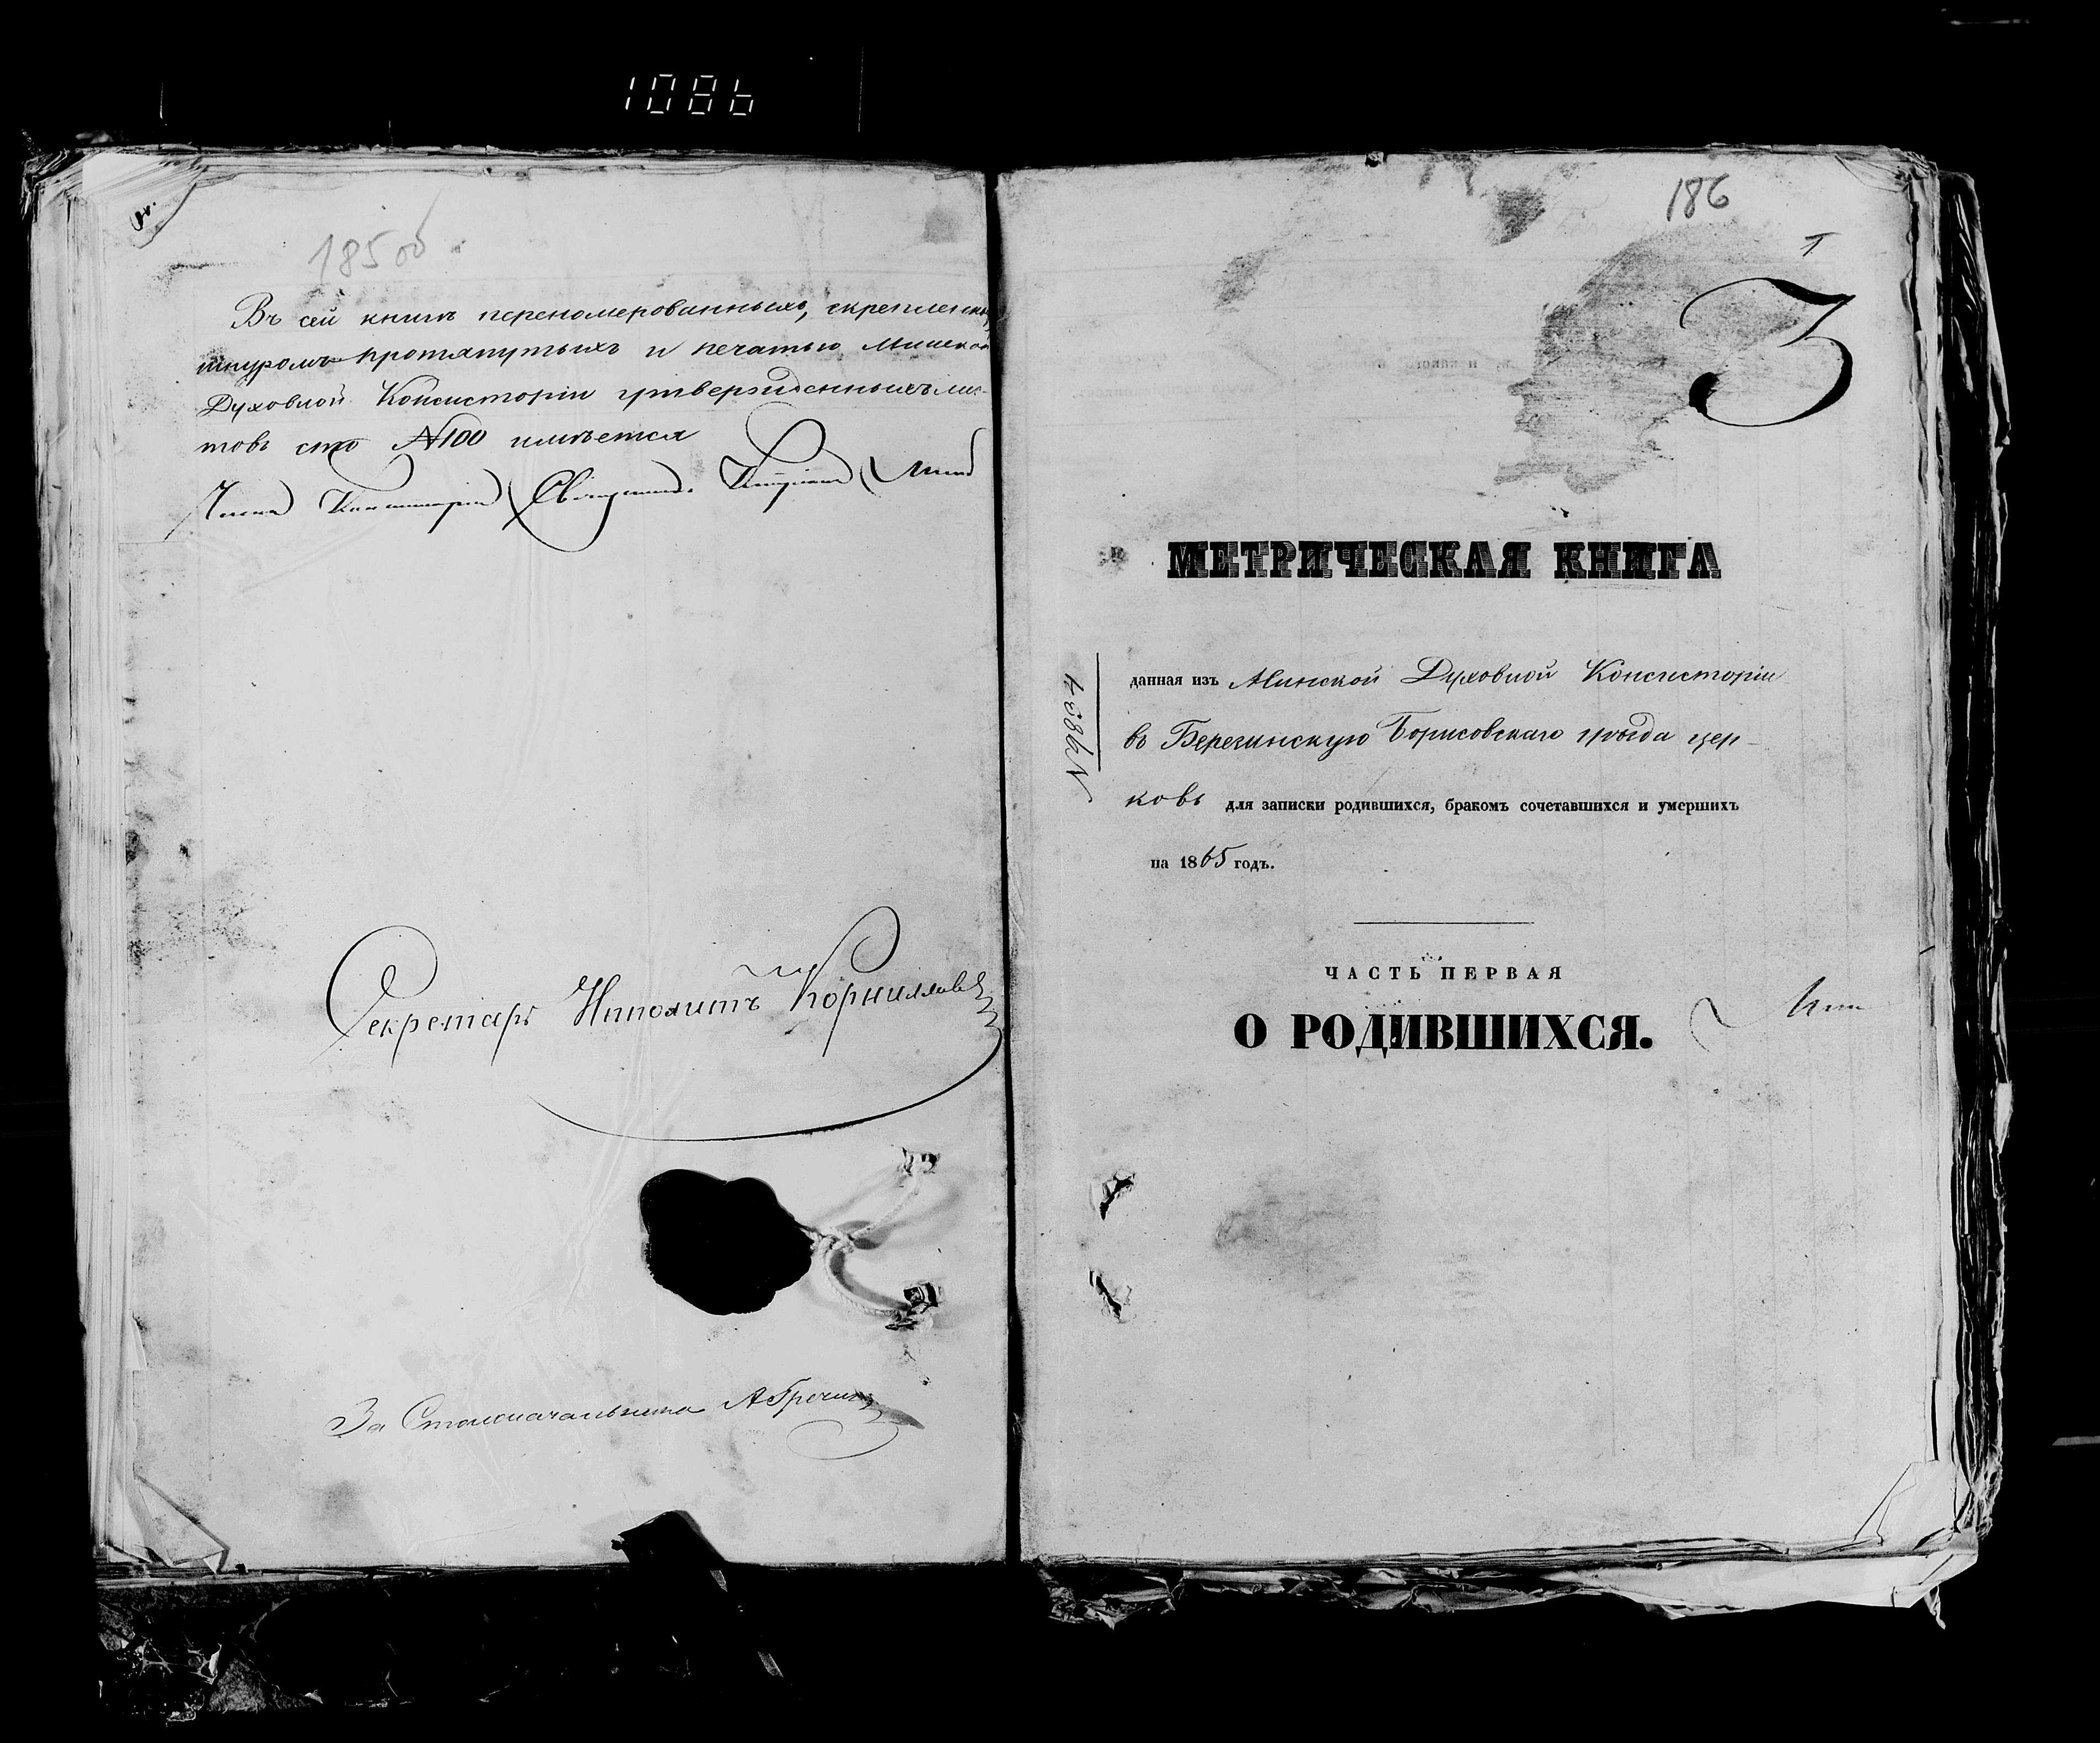 1086
185 об
Въ сей книгѣ перономерованныхъ, скрепленны
шнуромъ протянутыхъ и печатью Минской
Духовной Консисторіи утвержденныхъ лис-
товъ сто №100 имѣется
Членъ Консисторіи Священникъ
Секретарь Ипполитъ Корниловъ
За Столоначальника
186
1
3
МЕТРИЧЕСКАЯ КНИГА
№ 8834
данная изъ Минской Духовной Консисторіи
въ Березинскую Борисовскаго уѣзда цер-
ковь для записки родившихся, бракомъ сочетавшихся и умершихъ
на 1865 годъ.
ЧАСТЬ ПЕРВАЯ
О РОДИВШИХСЯ.